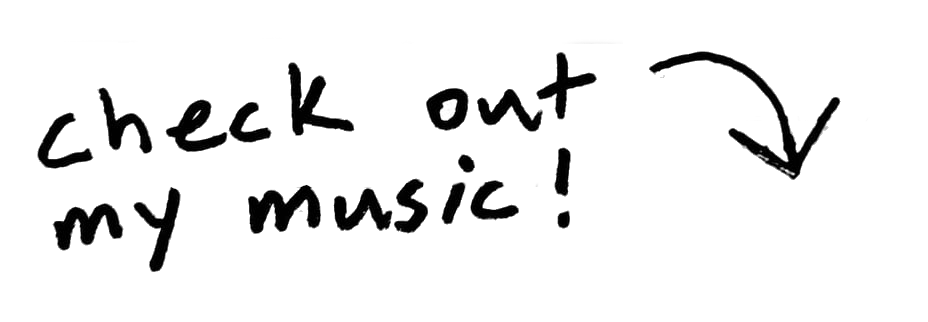 check out
my music!